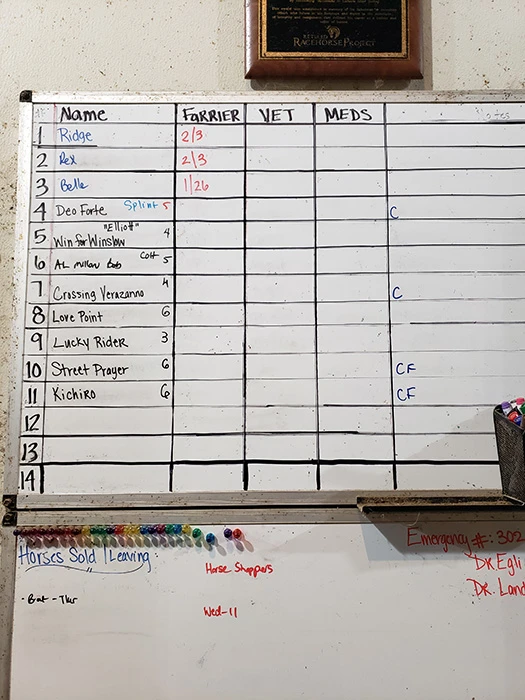 RETIRED
RACEHORSE PROJECT
# Name FARRIER VET MEDS
1 Ridge 2/3
2 Rex 2/3
3 Belle 1/26
4 Deo Forte Splint 5 C
5 Win for Winslow "Elliott" 4
6 Colt 5
7 Crossing Verazanno 4 C
8 Love Point 6
9 Lucky Rider 3
10 Street Prayer 6 CF
11 Kichiro 6 CF
12
13
14
Horses Sold | Leaving: Emergency #: 302
Horse Shoppers Dr. Egli
Dr. Land
Wed-11